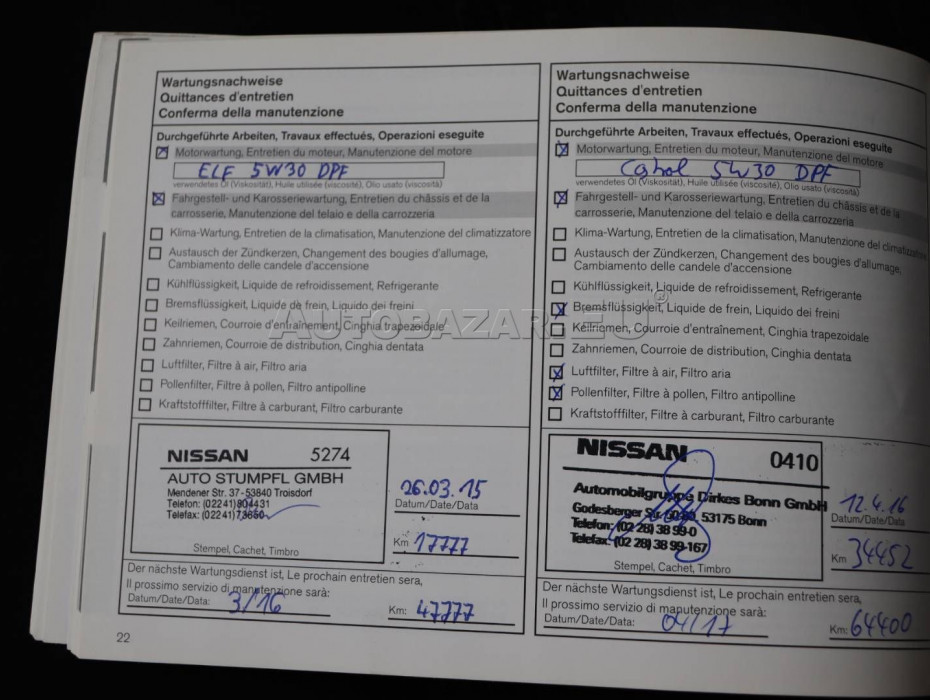 Wartungsnachweise
Quittances d'entretien
Conferma della manutenzione
Durchgeführte Arbeiten, Travaux effectués, Operazioni eseguite
Motorwartung, Entretien du moteur, Manutenzione del motore
ELF 5W30 DPF
verwendetes Öl (Viskosität), Huile utilisée (viscosité), Olio usato (viscosità)
Fahrgestell- und Karosseriewartung, Entretien du châssis et de la
carrosserie, Manutenzione del telaio e della carrozzeria
Klima-Wartung, Entretien de la climatisation, Manutenzione del climatizzatore
Austausch der Zündkerzen, Changement des bougies d'allumage,
Cambiamento delle candele d'accensione
Kühlflüssigkeit, Liquide de refroidissement, Refrigerante
Bremsflüssigkeit, Liquide de frein, Liquido dei freini
Keilriemen, Courroie d'entraînement, Cinghia trapezoidale
Zahnriemen, Courroie de distribution, Cinghia dentata
Luftfilter, Filtre à air, Filtro aria
Pollenfilter, Filtre à pollen, Filtro antipolline
Kraftstofffilter, Filtre à carburant, Filtro carburante
NISSAN 5274
AUTO STUMPFL GMBH
Mendener Str. 37 - 53840 Troisdorf
Telefon: (02241) 804431
Telefax: (02241) 73650
Stempel, Cachet, Timbro
26.03.15
Datum/Date/Data:
Km 17777
Der nächste Wartungsdienst ist, Le prochain entretien sera,
Il prossimo servizio di manutenzione sarà:
Datum/Date/Data: 3/16 Km: 47777
22
Wartungsnachweise
Quittances d'entretien
Conferma della manutenzione
Durchgeführte Arbeiten, Travaux effectués, Operazioni eseguite
Motorwartung, Entretien du moteur, Manutenzione del motore
5W30 DPF
verwendetes Öl (Viskosität), Huile utilisée (viscosité), Olio usato (viscosità)
Fahrgestell- und Karosseriewartung, Entretien du châssis et de la
carrosserie, Manutenzione del telaio e della carrozzeria
Klima-Wartung, Entretien de la climatisation, Manutenzione del climatizzatore
Austausch der Zündkerzen, Changement des bougies d'allumage,
Cambiamento delle candele d'accensione
Kühlflüssigkeit, Liquide de refroidissement, Refrigerante
Bremsflüssigkeit, Liquide de frein, Liquido dei freini
Keilriemen, Courroie d'entraînement, Cinghia trapezoidale
Zahnriemen, Courroie de distribution, Cinghia dentata
Luftfilter, Filtre à air, Filtro aria
Pollenfilter, Filtre à pollen, Filtro antipolline
Kraftstofffilter, Filtre à carburant, Filtro carburante
NISSAN 0410
Automobilgruppe Dirkes Bonn GmbH
Godesberger Str. 53175 Bonn
Telefon: (02 28) 38 99-0
Telefax: (02 28) 38 99-167
Stempel, Cachet, Timbro
12.4.16
Datum/Date/Data
Km 34452
Der nächste Wartungsdienst ist, Le prochain entretien sera,
Il prossimo servizio di manutenzione sarà:
Datum/Date/Data: 04/17 Km: 64400
AUTOBAZAR.EU